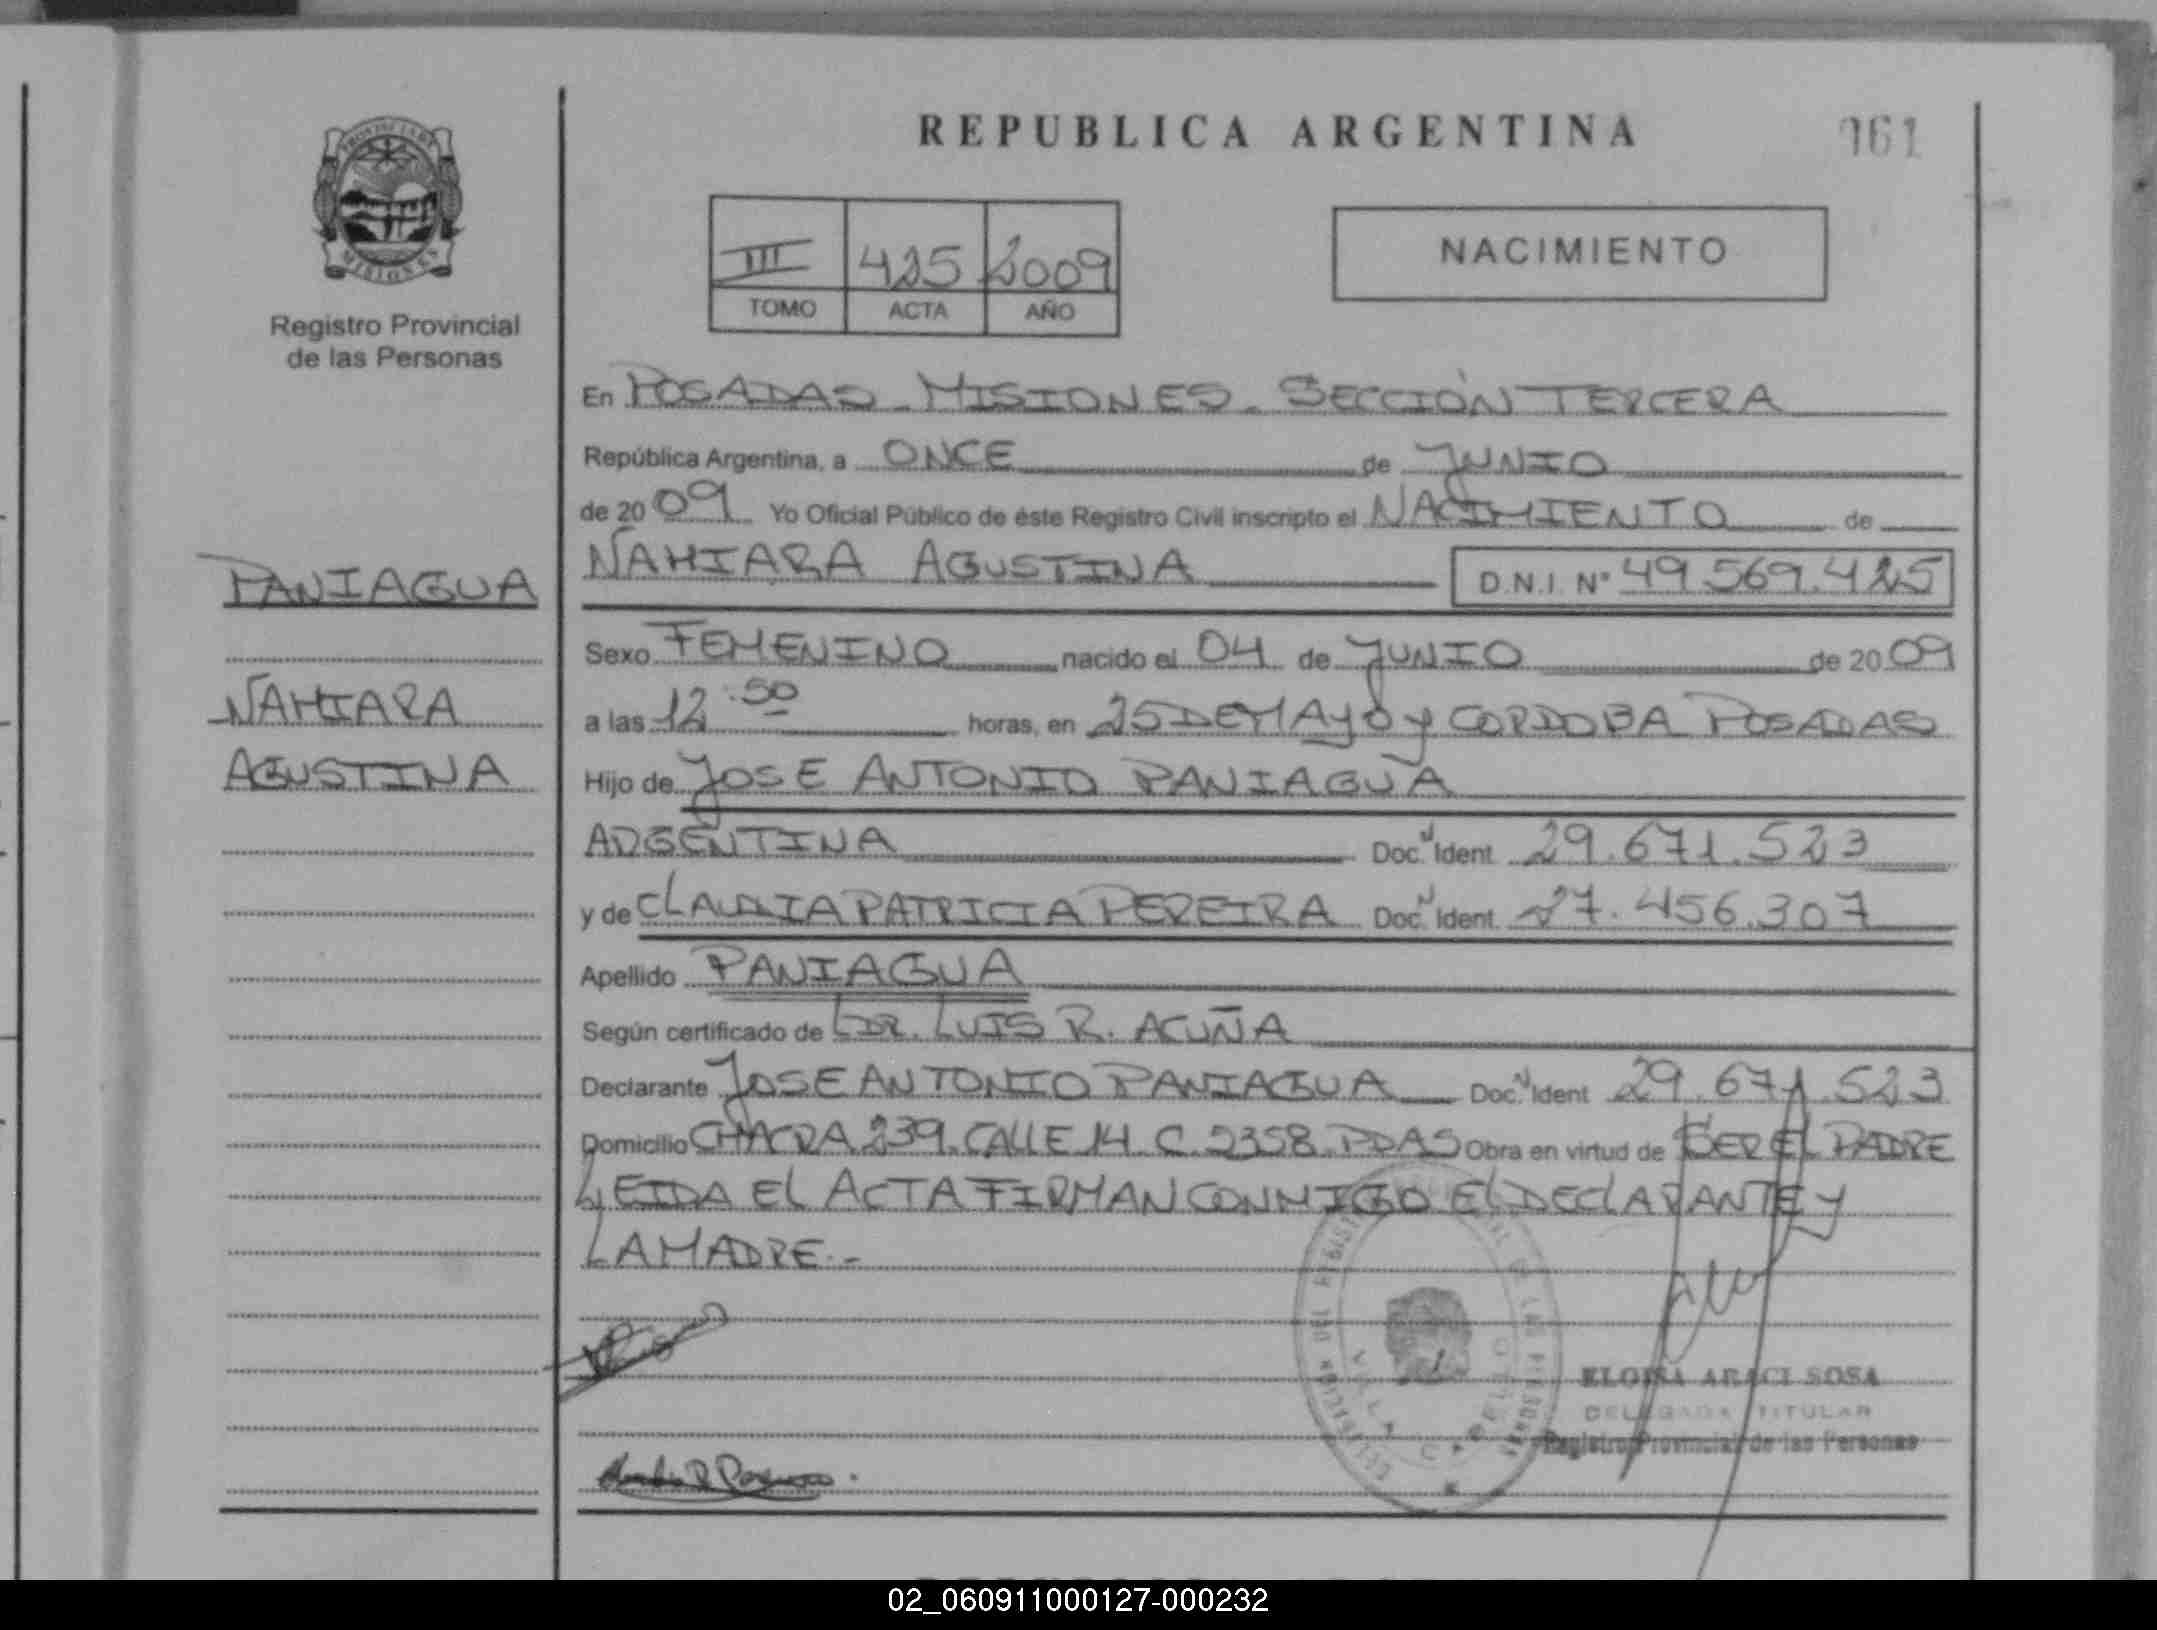 REPUBLICA ARGENTINA
961
PROVINCIA DE
MISIONES
Registro Provincial
de las Personas
III 425 2009
TOMO ACTA AÑO
NACIMIENTO
En POSADAS - MISIONES - SECCIÓN TERCERA
República Argentina, a ONCE de JUNIO
de 2009 Yo Oficial Público de éste Registro Civil inscripto el NACIMIENTO de
NAHIARA AGUSTINA D.N.I. N° 49.569.425
PANIAGUA
NAHIARA
AGUSTINA
Sexo FEMENINO nacido el 04 de JUNIO de 2009
a las 12.50 horas, en 25 DE MAYO y CORDOBA POSADAS
Hijo de JOSE ANTONIO PANIAGUA
ARGENTINA Doc. Ident. 29.671.523
y de CLAUDIA PATRICIA PEREIRA Doc. Ident. 27.456.307
Apellido PANIAGUA
Según certificado de DR. LUIS R. ACUÑA
Declarante JOSE ANTONIO PANIAGUA Doc. Ident 29.671.523
Domicilio CHACRA 239. CALLE 14 C. 2358. PDAS Obra en virtud de SER EL PADRE
LEIDA EL ACTA FIRMAN CONMIGO EL DECLARANTE y
LA MADRE.-
ELOISA ARACI SOSA
DELEGADA TITULAR
Registro Provincial de las Personas
02_060911000127-000232